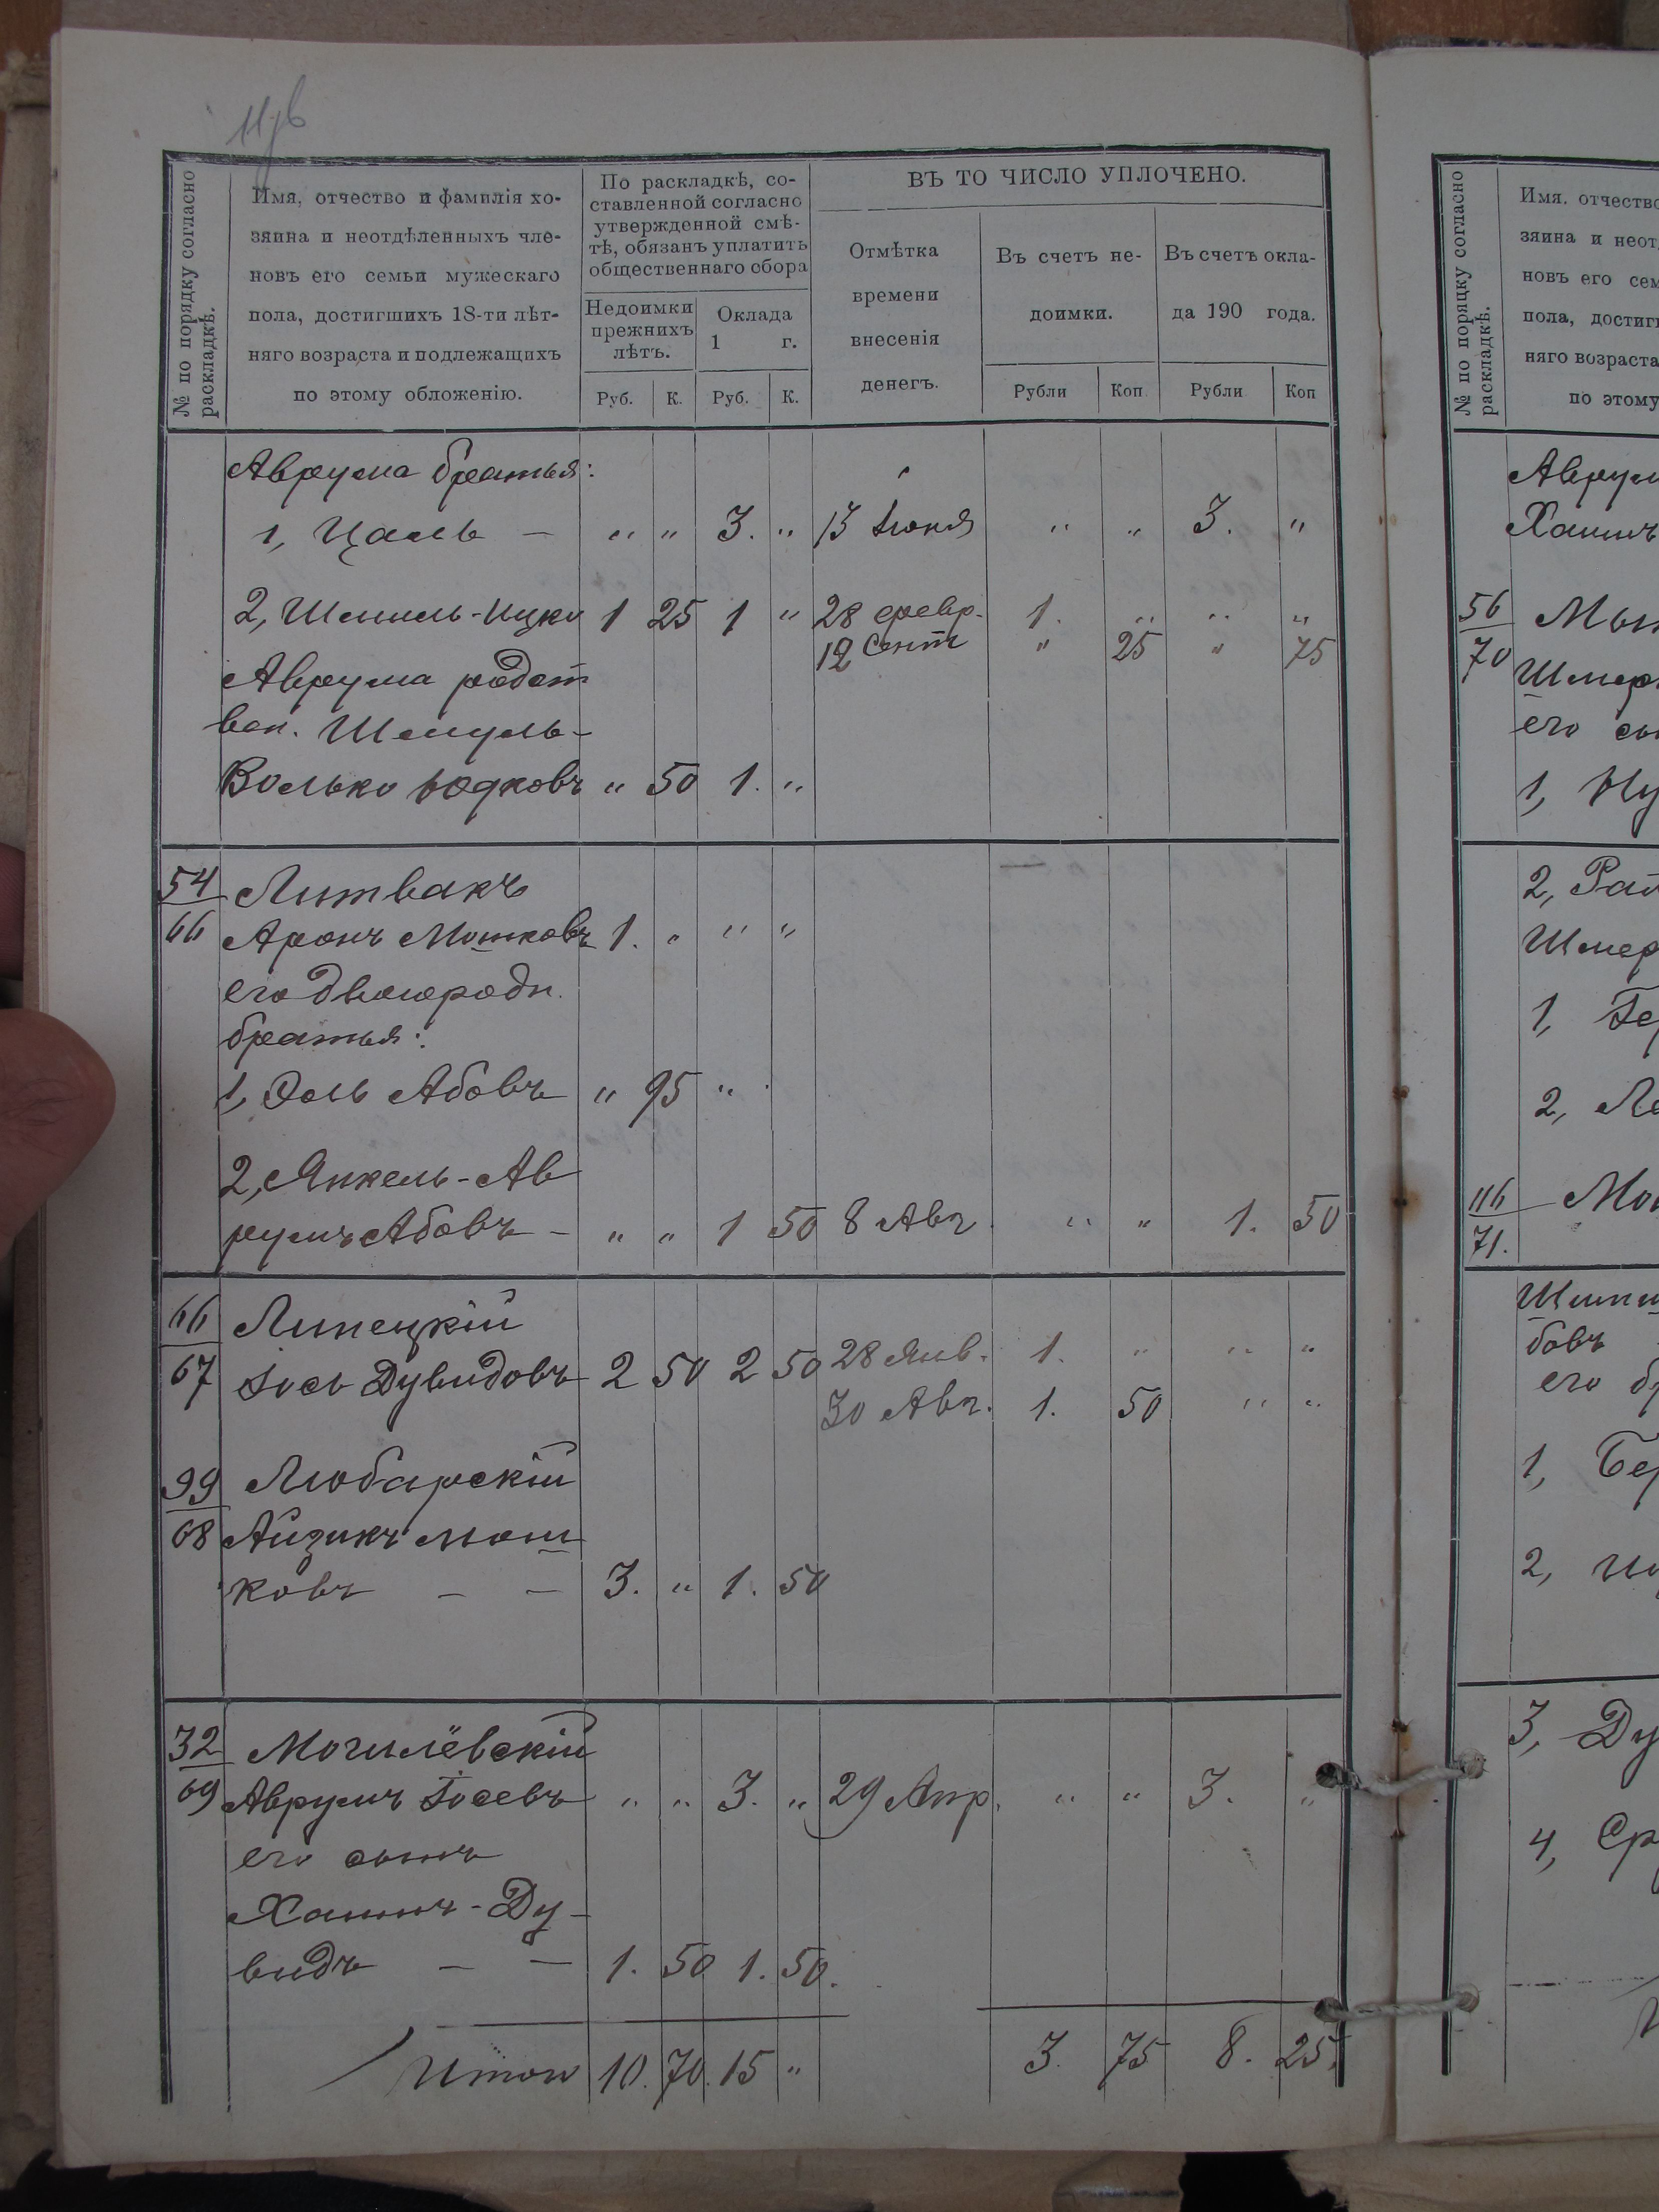 № по порядку согласно раскладкѣ.
Имя, отчество и фамилія хо-
зяина и неотдѣленныхъ чле-
новъ его семьи мужескаго
пола, достигшихъ 18-ти лѣт-
няго возраста и подлежащихъ
по этому обложенію.
По раскладкѣ, со-
ставленной согласно
утвержденной смѣ-
тѣ, обязанъ уплатить
общественнаго сбора
Недоимки
прежнихъ
лѣтъ.
Оклада
1 г.
Руб. К. Руб. К.
ВЪ ТО ЧИСЛО УПЛОЧЕНО.
Отмѣтка
времени
внесенія
денегъ.
Въ счетъ не-
доимки.
Въ счетъ окла-
да 190 года.
Рубли Коп. Рубли Коп
Аврума братья:
1, Цаль — " " 3. " 13 Іюня " " 3. "
2, Шмиль-Ицко 1 25 1 " 28 февр. 1. " " "
12 Сент " 25 " 75
Аврума родст
вен. Шмуль-
Волько Юдковъ " 50 1. "
54 Литвакъ
66 Аронъ Мошковъ 1. " " "
его двоюродн.
братья:
1, Эль Абовъ " 95 "
2, Янкель-Ав
румъ Абовъ — " " 1 50 8 Авг. " " 1. 50
66 Липецкій
67 Іось Дувидовъ 2 50 2 50 28 Янв. 1. " " "
30 Авг. 1. 50 " "
99 Любарскій
68 Айзикъ Мош
ковъ — — 3. " 1. 50
32 Могилёвскій
69 Аврумъ Іосевъ " " 3. " 29 Апр. " " 3. "
его сынъ
Хаимъ-Ду-
видъ — — 1. 50 1. 50.
Итого 10. 70. 15 " 3. 75 8. 25.
№ по порядку согласно раскладкѣ.
Имя, отчество
зяина и неот
новъ его сем
пола, достиг
няго возраста
по этому
Аврум
Хаимъ
56
70
Шмер
его сы
1, Ну
2,
Шмер
1, Гер
2, Ле
116
71.
бовъ
его б
1, Бер
2,
3, Ду
4, Ср